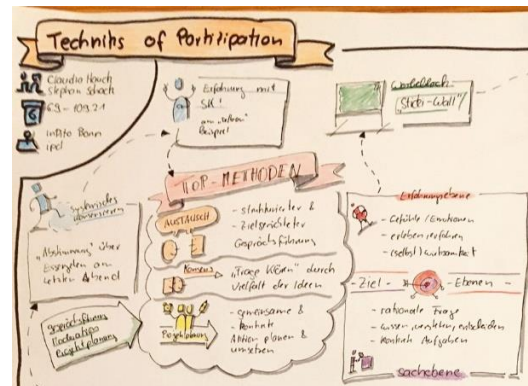 Technik's of Participation
Stephan Schack
6.9 - 10.9.21
Bonn
ipd
Erfahrung mit
SK!
Beispiel
"Sticki-Wall"
Systemisches
Konsensieren
"Abstimmung" über
am
letzten Abend
Gesprächsführung
Moderation
Projektplanung
TOP-METHODEN
AUSTAUSCH
- strukturierter &
zielgerichteter
Gesprächsführung
Konsens
durch
Vielfalt der Ideen
Projektplanung
- gemeinsame &
- konkrete
Aktion planen &
umsetzen
Erfahrungsebene
- Gefühle/Emotionen
- erleben/erfahren
- (selbst)
- Ziel - Ebenen -
- rationale Frage
- wissen, verstehen, entscheiden
- konkrete Aufgaben
Sachebene